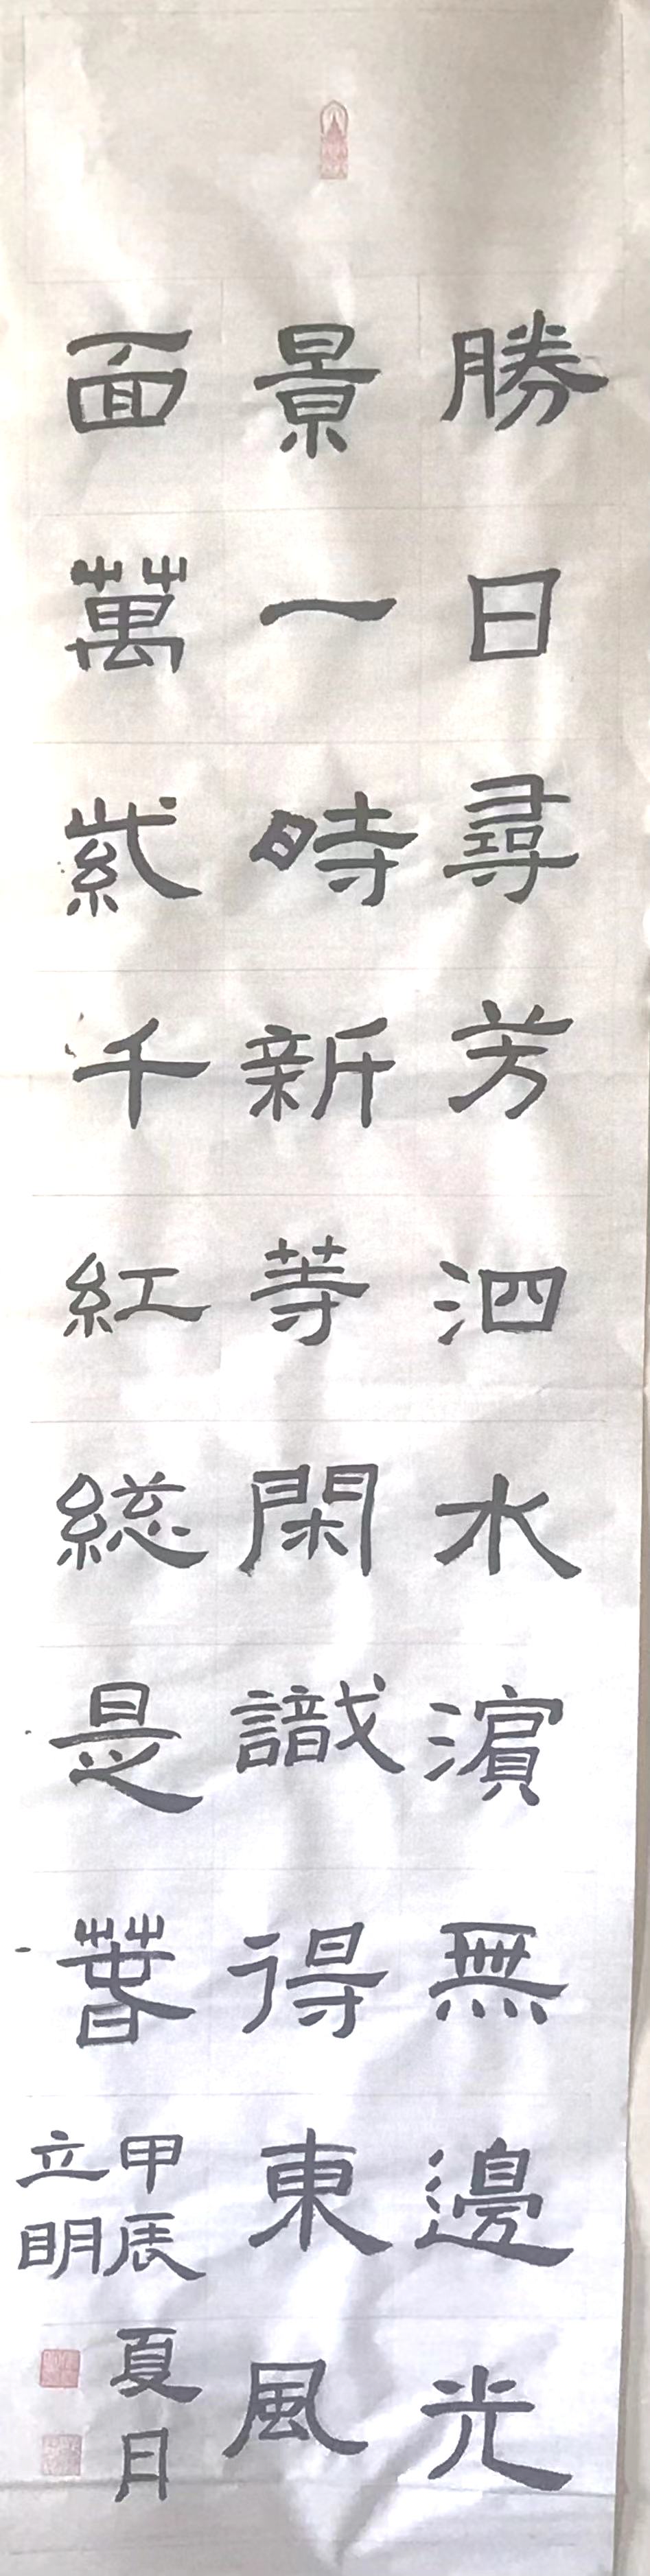 勝日尋芳泗水濱無邊光
景一時新等閑識得東風
面萬紫千紅総是春
甲辰夏日
立明